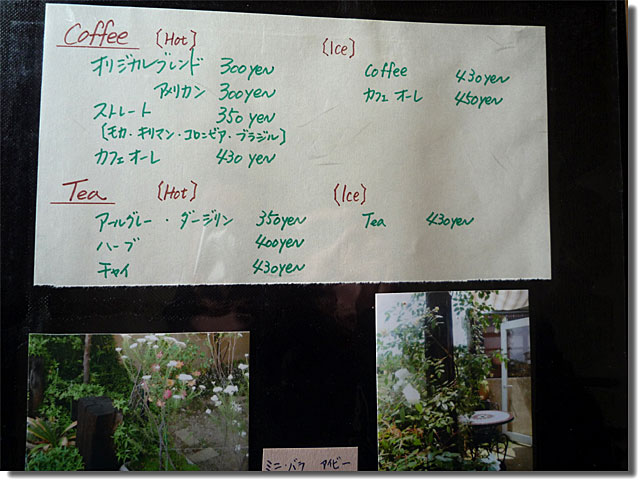 Coffee [Hot] [Ice]
オリジナルブレンド 300yen Coffee 430yen
アメリカン 300yen カフェオーレ 450yen
ストレート 350yen
[モカ・キリマン・コロンビア・ブラジル]
カフェオーレ 430yen
Tea [Hot] [Ice]
アールグレー・ダージリン 350yen Tea 430yen
ハーブ 400yen
チャイ 430yen
ミニ・バラ アイビー